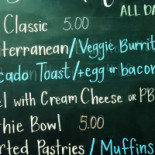 ALL DA
Classic 5.00
terranean/Veggie Burrit
cado Toast/+egg or bacon
el with Cream Cheese or PB
hie Bowl 5.00
rted Pastries / Muffins